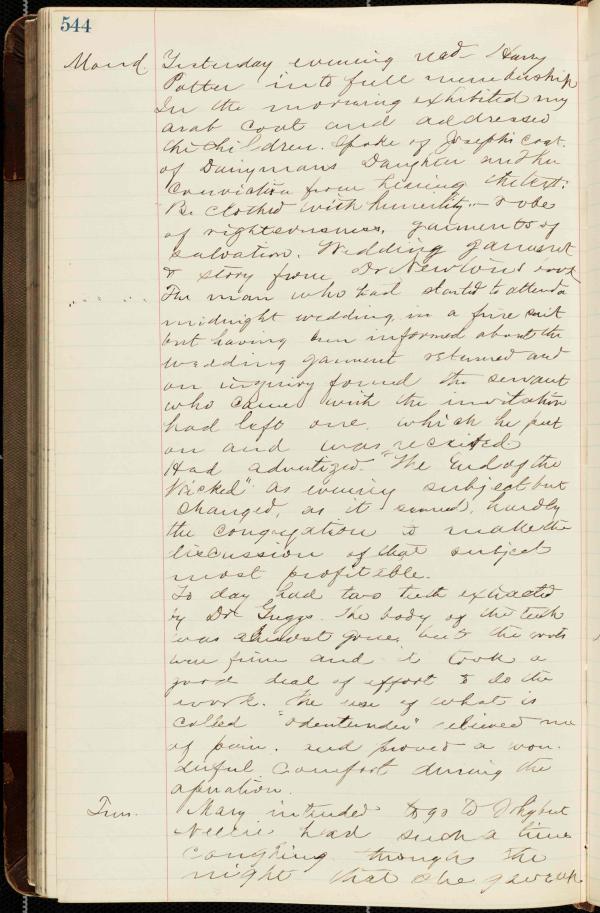 544
Mond. Yesterday evening recd Harry
Potter into full membership
In the morning exhibited my
arab coat and addressed
the children. Spoke of Josephs coat.
of Dairymans Daughter and her
conviction from hearing the text:
Be clothed with humility.- robe
of righteousness, garments of
salvation. Wedding garment
& story from Dr Newtons book
The man who had started to attend a
midnight wedding in a fine suit
but having been informed about the
wedding garment returned and
on inquiry found the servant
who came with the invitation
had left one. which he put
on and was received.
Had advertized "The End of the
Wicked" as evening subject but
changed, as it seemed hardly
the congregation to make the
discussion of that subject
most profitable.
To day had two teeth extracted
by Dr Griggs. The body of the teeth
was almost gone, but the roots
were firm and it took a
good deal of effort to do the
work. The use of what is
called "odentunder" relieved me
of pain. and proved a won-
derful comfort during the
operation.
Tues. Mary intended to go to but
Nellie had such a time
coughing through the
night that she gave up